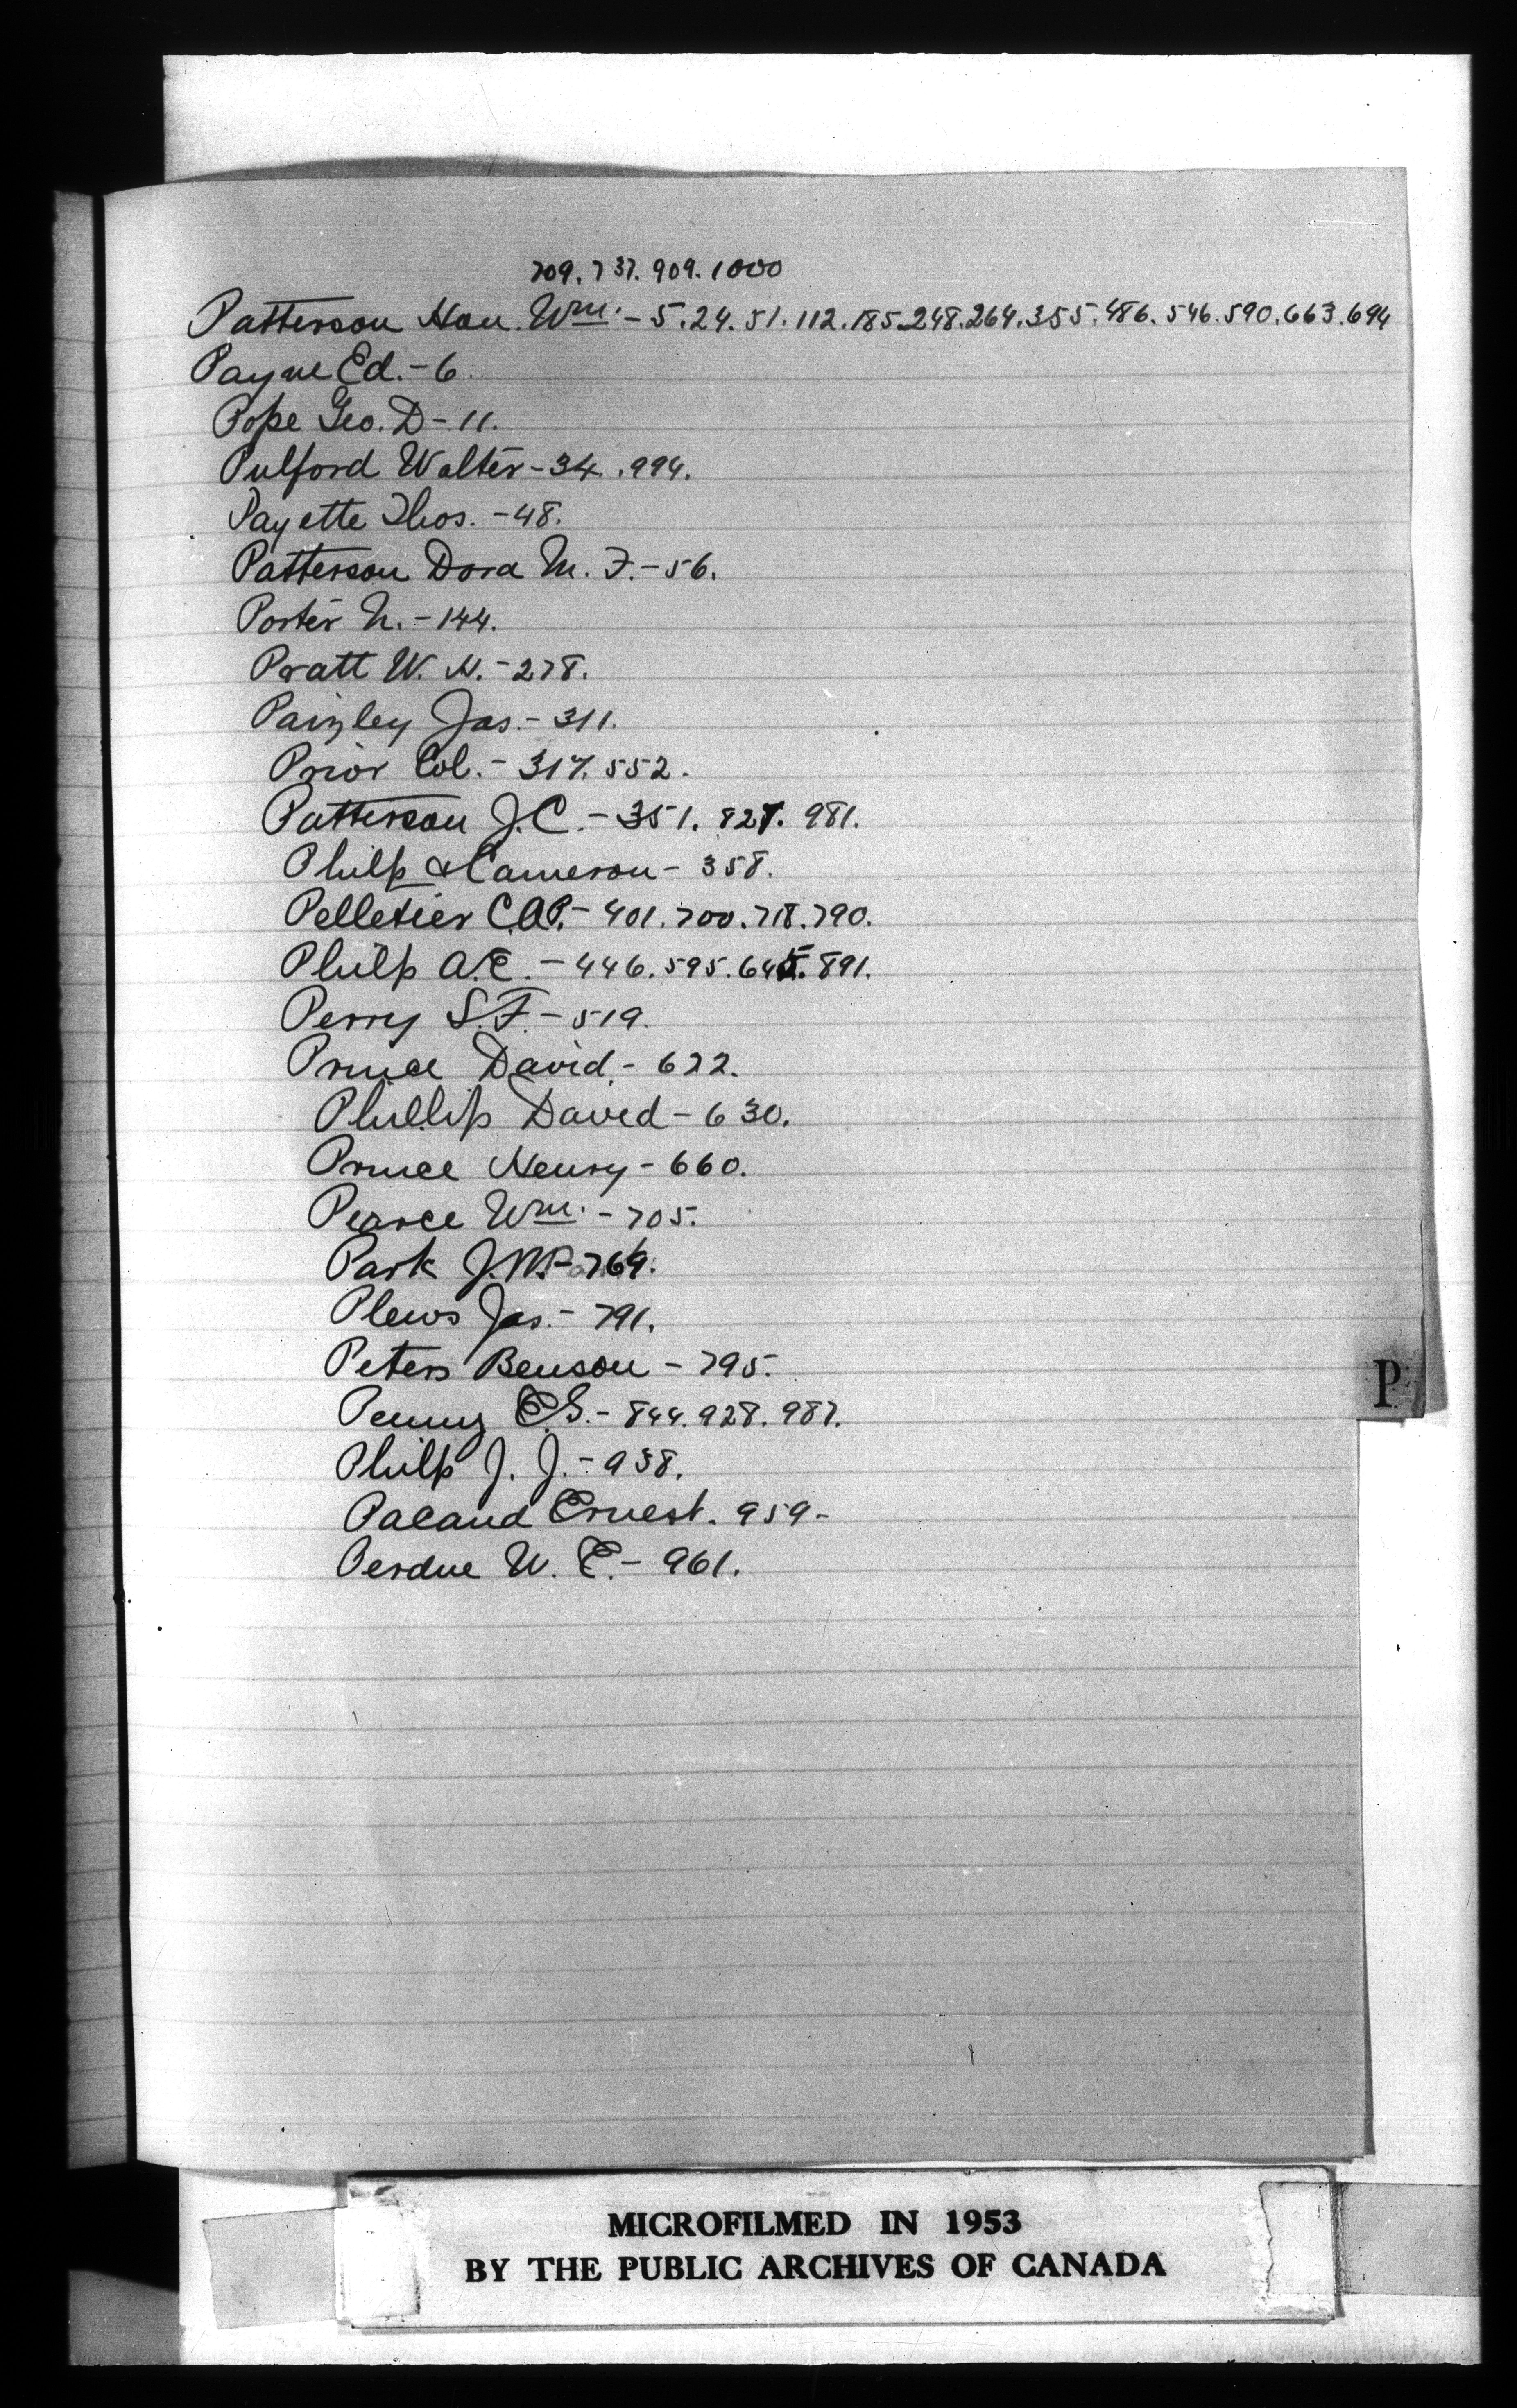 709. 737. 909. 1000
Patterson Hon. Wm. - 5. 24. 51. 112. 185. 248. 264. 355. 486. 546. 590. 663. 694
Payne Ed. - 6.
Pope Geo. D - 11.
Pulford Walter - 34. 994.
Payette Thos. - 48.
Patterson Dora M. F. - 56.
Porter N. - 144.
Pratt W. H. - 278.
Paisley Jas. - 311.
Prior Col. - 317. 552.
Patterson J. C. - 351. 827. 981.
Philp & Cameron - 358.
Pelletier C.A.P. - 401. 700. 718. 790.
Philp A.E. - 446. 595. 645. 891.
Perry S. F. - 519.
Prince David. - 622.
Phillip David - 630.
Prince Henry - 660.
Pearce Wm. - 705.
Park J. - 769.
Plews Jas. - 791.
Peters Benson - 795.
Penny E.G. - 844. 928. 987.
Philp J. J. - 938.
Pacaud Ernest. 959 -
Perdue W. E. - 961.
P
MICROFILMED IN 1953
BY THE PUBLIC ARCHIVES OF CANADA